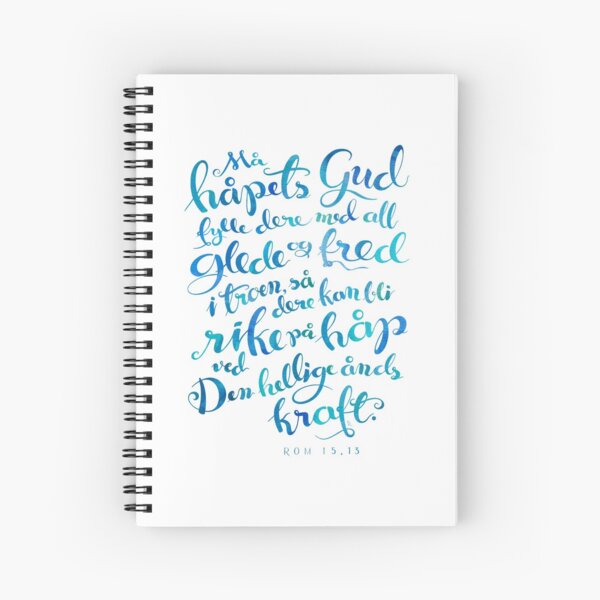 Må
håpets Gud
fylle dere med all
glede og fred
i troen, så
dere kan bli
rike på håp
ved
Den hellige ånds
kraft.
ROM 15,13